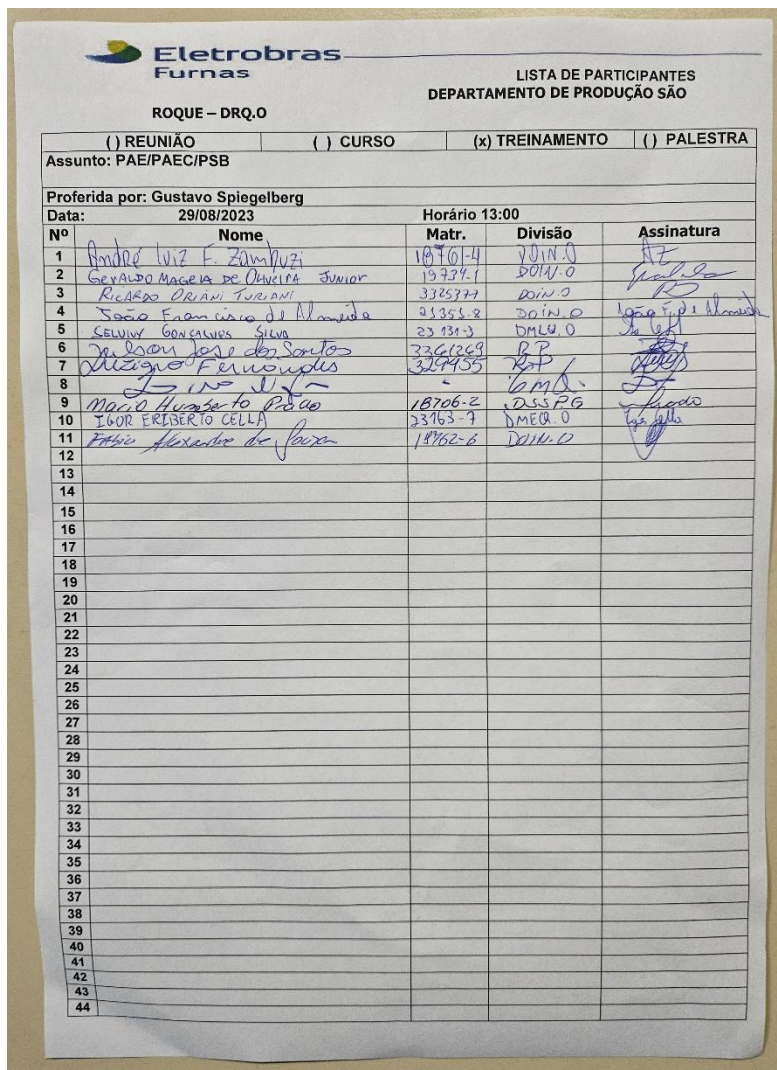 Eletrobras
Furnas
LISTA DE PARTICIPANTES
DEPARTAMENTO DE PRODUÇÃO SÃO
ROQUE – DRQ.O
( ) REUNIÃO ( ) CURSO (x) TREINAMENTO ( ) PALESTRA
Assunto: PAE/PAEC/PSB
Proferida por: Gustavo Spiegelberg
Data: 29/08/2023 Horário 13:00
Nº Nome Matr. Divisão Assinatura
1 André Luiz F. Zambuzi 18761-4 DOIN.O AZ
2 GERALDO MAGELA DE OLIVEIRA JUNIOR 19734-1 DOIN.O
3 RICARDO ORIANI TURIANI 3325377 DOIN.O
4 João Francisco de Almeida 21353-8 DOIN.O João F. de Almeida
5 GONÇALVES SILVA 23131-3
6 José dos Santos 3361269
7 Fernandes 329455
8 -
9 Mario Humberto Prado 18706-2 DSSPG Prado
10 IGOR ERIBERTO CELLA 23763-7 DMEQ.O Igor Cella
11 Fábio Alexandre de Souza 18762-6 DOIN.O
12
13
14
15
16
17
18
19
20
21
22
23
24
25
26
27
28
29
30
31
32
33
34
35
36
37
38
39
40
41
42
43
44